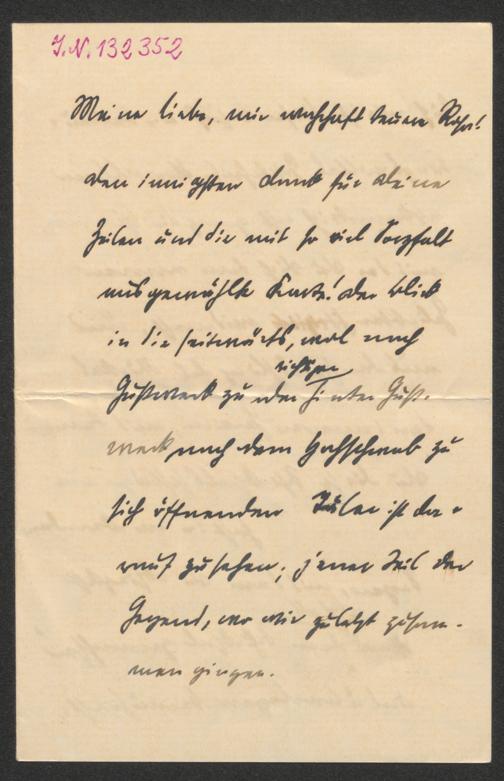 J.N. 132352
Meine liebe, mir wahrhaft teuere Rosa!
den innigsten Dank für deine
Zeilen und die mit so viel Sorgfalt
ausgewählte Karte! der Blick
in die seitwärts, wol nach
Gußwerk zu oder hinter Guß-
werk nach dem Hochschwab zu
sich öffnenden Täler ist da-
rauf zu sehen; jener Teil der
Gegend, wo wir zuletzt zusam-
men gingen.